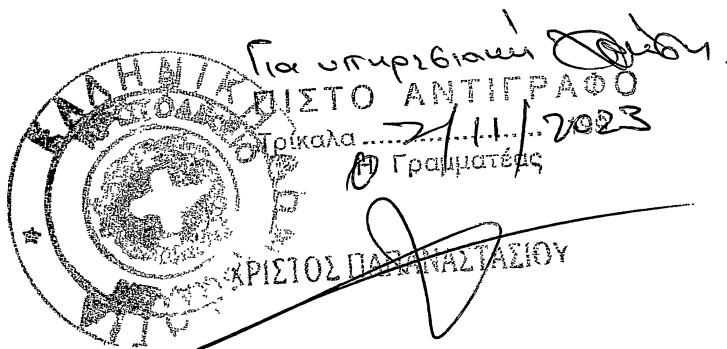 Για υπηρεσιακή
ΠΙΣΤΟ ΑΝΤΙΓΡΑΦΟ
Τρίκαλα ..... 2/11/2023
Η Γραμματέας
ΧΡΙΣΤΟΣ ΠΑΠΑΝΑΣΤΑΣΙΟΥ
ΕΛΛΗΝΙΚΗ
ΠΡΩΤΟΔΙΚΕΙΟ